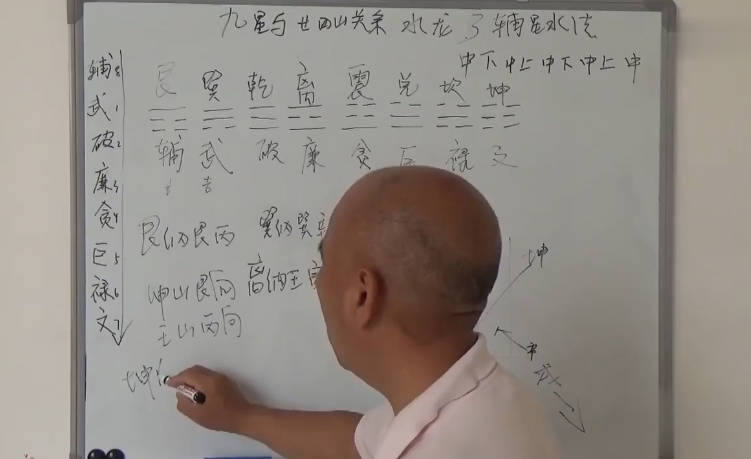 九星与廿四山关系 水龙 3 辅星水法
中下中上中下中上中
艮 巽 乾 离 震 兑 坎 坤
辅 武 破 廉 贪 巨 禄 文
吉 吉
辅8
武1
破2
廉3
贪4
巨5
禄6
文7
艮纳艮丙 巽纳巽辛
坤山艮向 离纳壬寅
壬山丙向
坤
坤
武